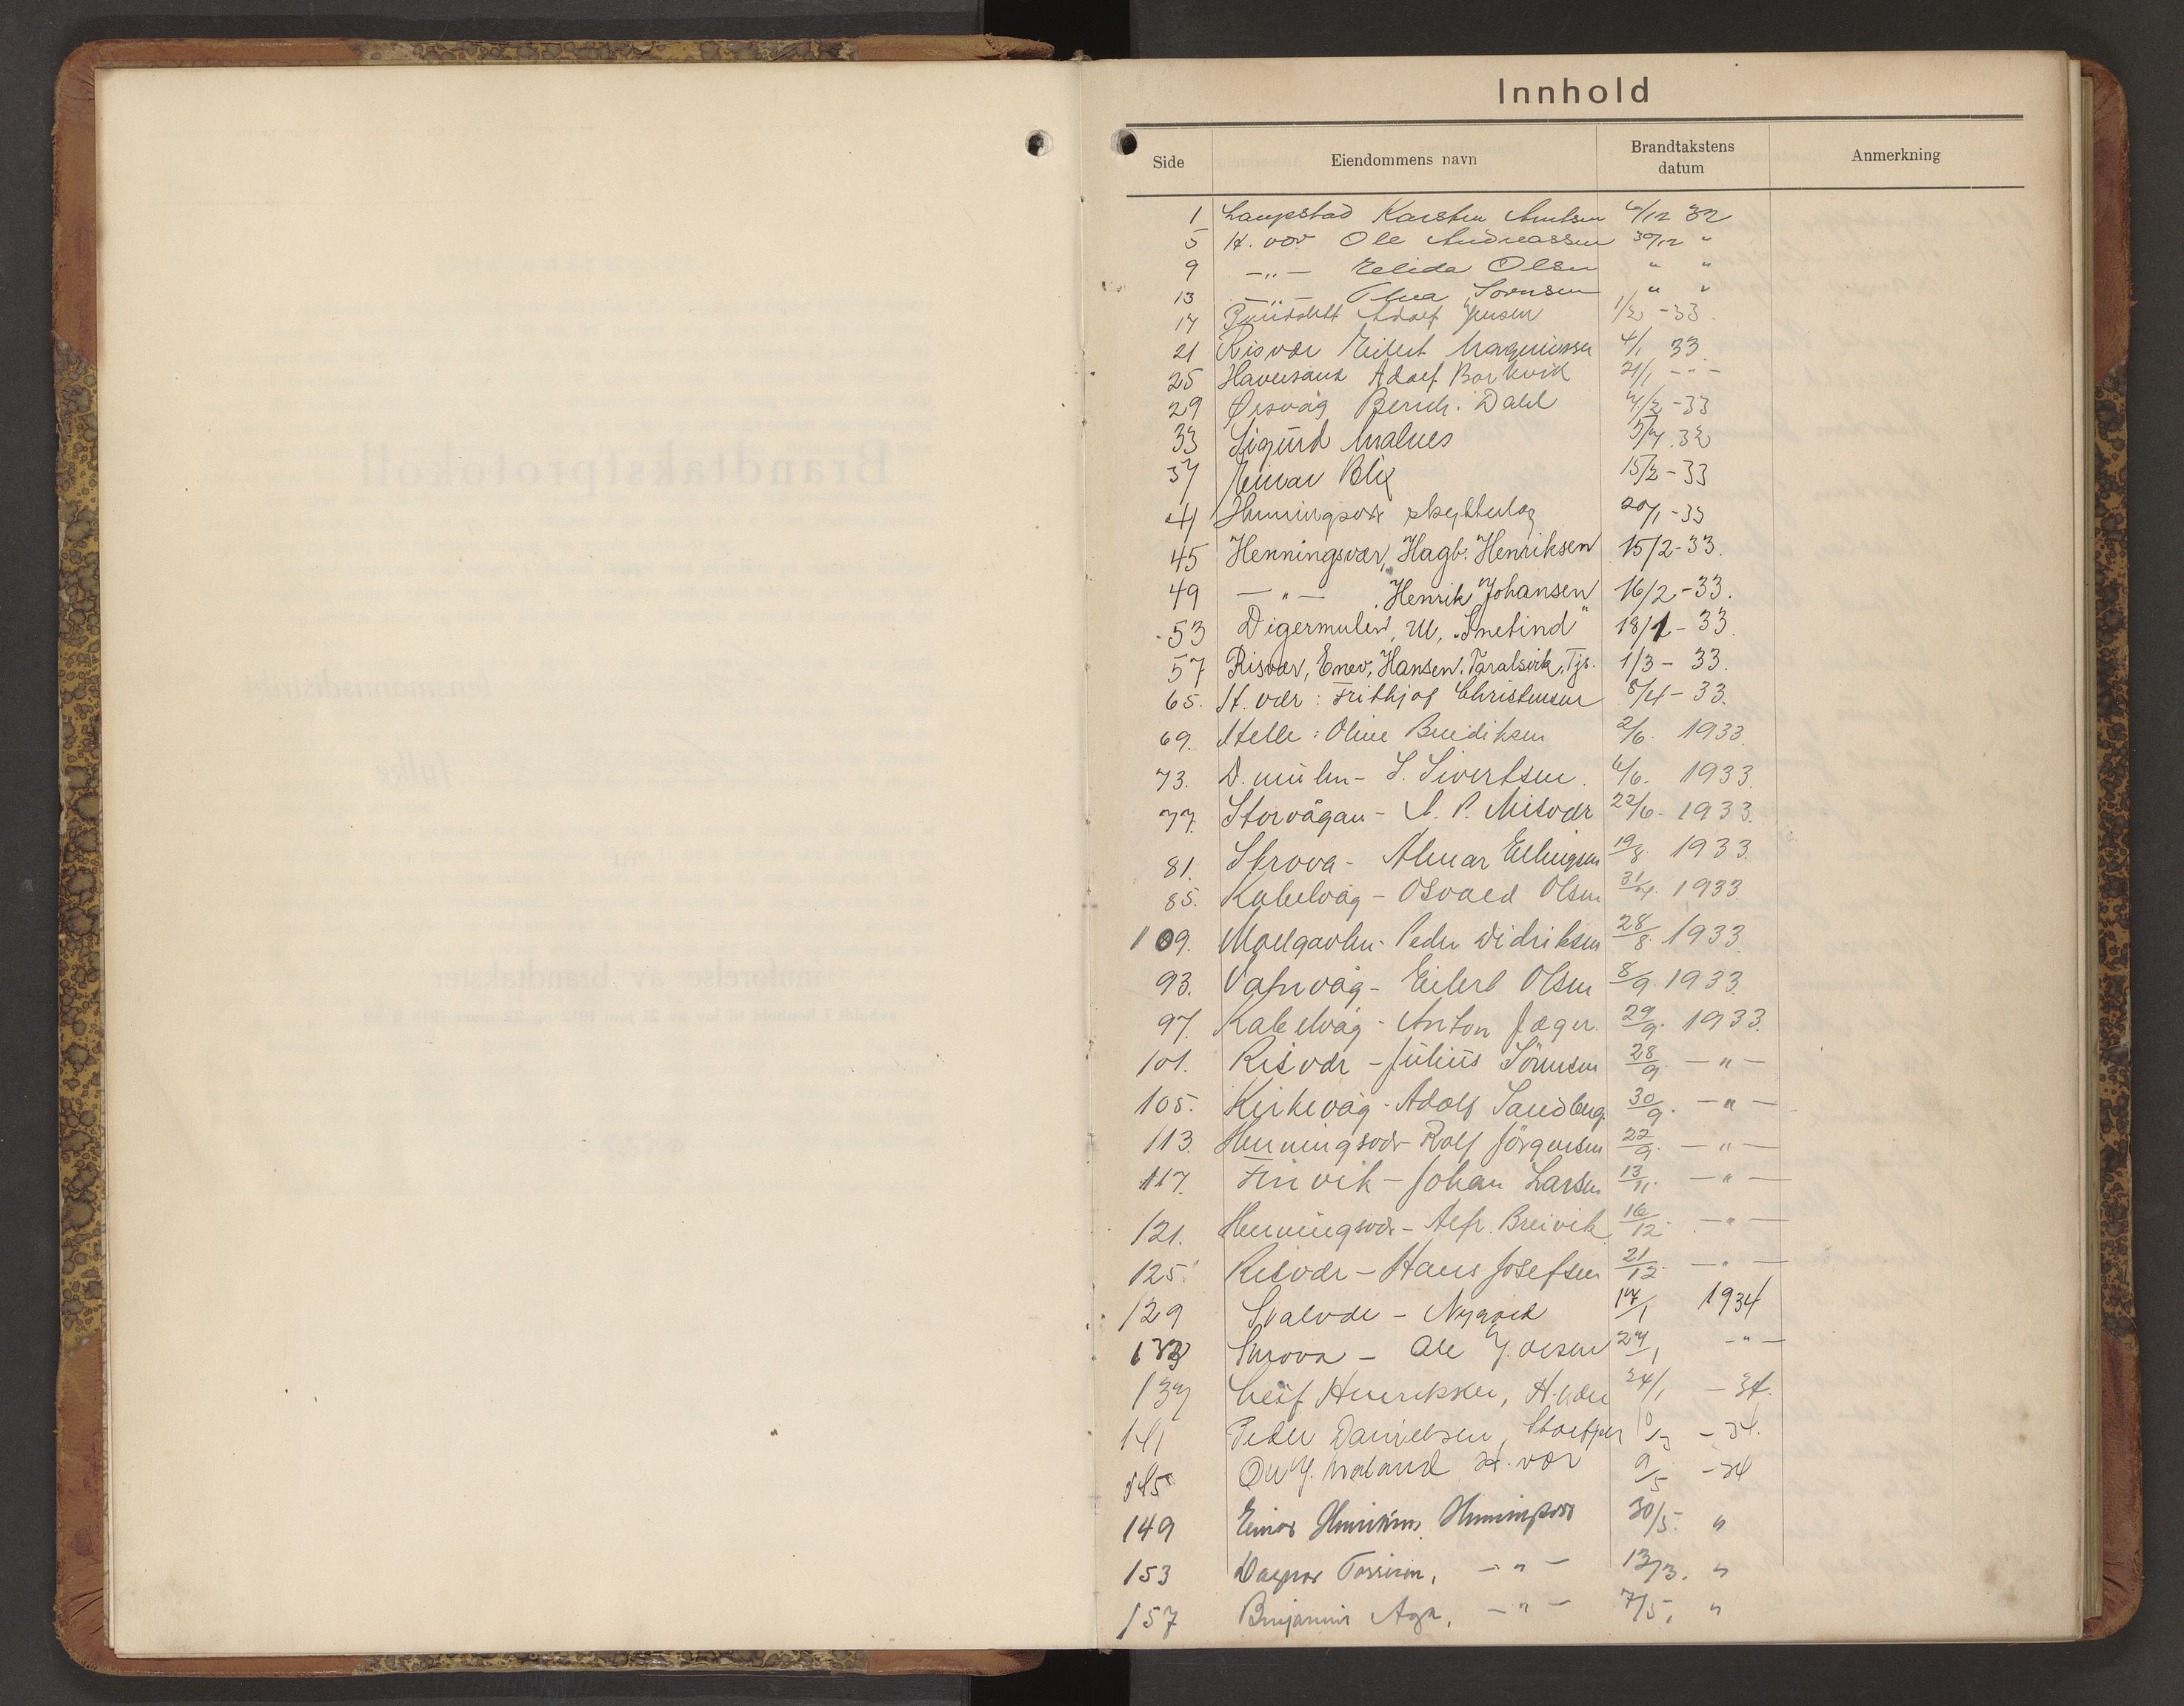 Innhold
Side Eiendommens navn Brandtakstens datum Anmerkning
1 Laupstad Karsten 6/12 32
5 H. vær Ole Andreassen 30/12 "
9 —„— Elida Olsen " "
13 —„— Thea Sørensen " "
17 Adolf Jensen 1/2 - 33.
21 Risvær Eilert Magnussen 4/1 33
25 Haversand Adolf Borkvik 21/1 -"-
29 Ørsvåg Bernh. Dahl 4/2 - 33
33 Sigurd Malnes 5/7. 32
37 Einar Blix 15/2 - 33
41 Henningsvær skytterlag 20/1 - 33
45 Henningsvær, Hagb. Henriksen 15/2 - 33.
49 — " — Henrik Johansen 16/2 - 33.
53 Digermulen, Ul. „Snetind" 18/1 - 33.
57 Risvær, Enev. Hansen, Taralsvik, Tjs. 1/3 - 33.
65. H. vær: Frithjof Christensen 8/4 - 33.
69. Helle: Oline Benediktsen 2/6. 1933.
73. D. mulen - S. Sivertsen. 6/6. 1933.
77. Storvågan - A. P. Misvær 22/6 - 1933.
81. Skrova - Almar Ellingsen 19/8. 1933.
85. Kabelvåg - Osvald Olsen 31/7. 1933.
109. Moelgavlen - Peder Didriksen 28/8. 1933.
93. Vatnvåg - Eilert Olsen 8/9. 1933.
97. Kabelvåg - Anton Jæger. 29/9. 1933.
101. Risvær - Julius Sörensen 28/9. — " —
105. Kirkevåg - Adolf Sandberg. 30/9. — " —
113. Henningsvær - Rolf Jörgensen 22/9. — " —
117. Finvik - Johan Larsen 13/11. — " —
121. Henningsvær - Alfr. Breivik 16/12. — " —
125. Risvær - Hans Josefsen 21/12. — " —
129 Svalvær - Nygård 17/1 1934
133 Skrova - Ole J. Olsen 27/1 — " —
137 Leif Henriksen, H. vær 24/1 - 34.
141 Peder Danielsen, 10/3 - 34.
145 H. vær 9/5 - 34
149 Einar Henriksen, Henningsvær 30/5. "
153 Dagmar — " — 13/3. "
157 Benjamin Aga, — " — 7/5. "